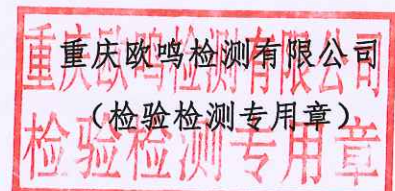 重庆欧鸣检测有限公司
(检验检测专用章)
重庆欧鸣检测有限公司
检验检测专用章